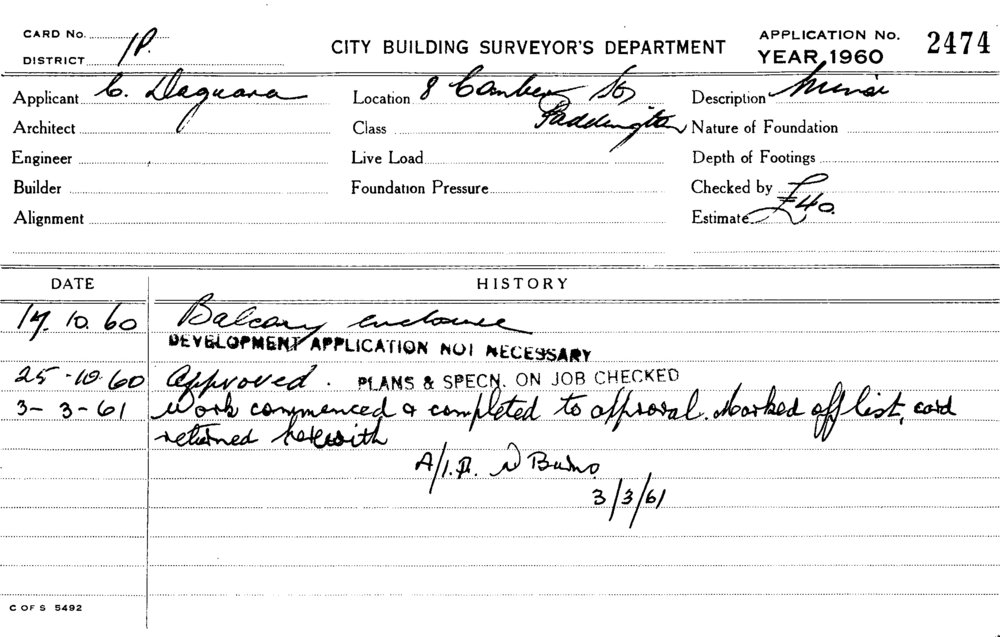 CARD No.
DISTRICT 1P.
CITY BUILDING SURVEYOR'S DEPARTMENT
APPLICATION No. 2474
YEAR 1960
Applicant C. Daguara Location 8 Camber St Description Minor
Architect Class Paddington Nature of Foundation
Engineer Live Load Depth of Footings
Builder Foundation Pressure Checked by
Alignment Estimate £40.
DATE HISTORY
17. 10. 60 Balcony enclosure
DEVELOPMENT APPLICATION NOT NECESSARY
25-10-60 Approved. PLANS & SPECN. ON JOB CHECKED
3-3-61 Work commenced & completed to approval. Marked off list, card
returned herewith
3/3/61
C OF S 5492